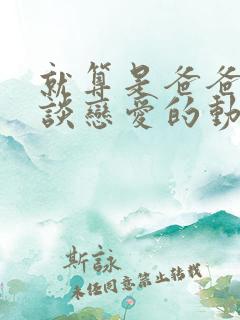 就算是爸爸
談戀愛的動
斯詠
未經同意禁止轉載